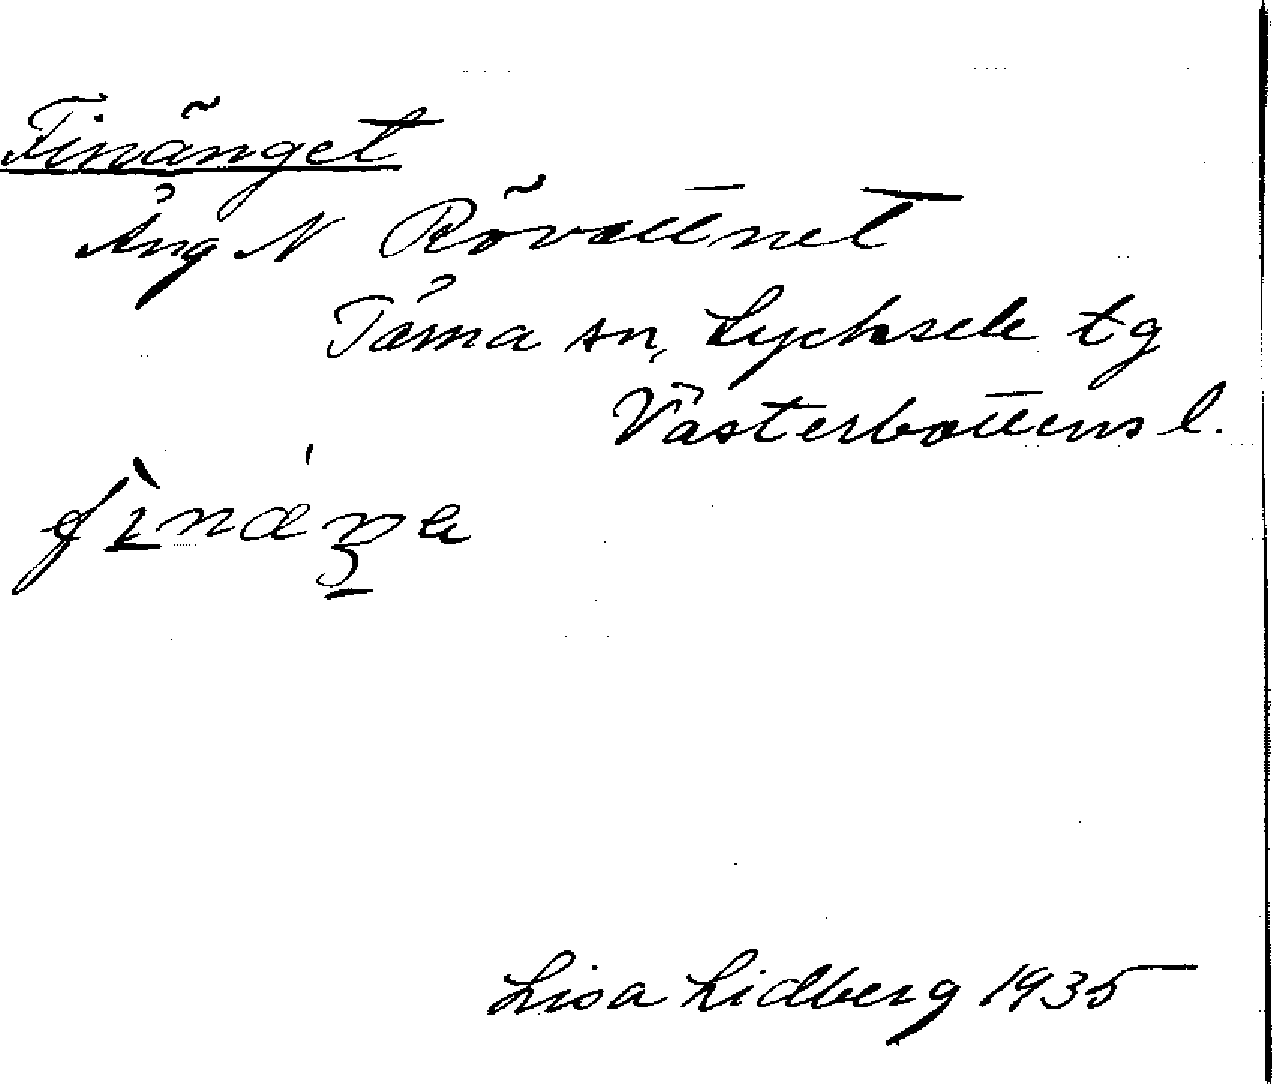 Finänget
Äng N Rövattnet
Tärna sn, Lycksele tg
Västerbottens l.
Lisa Lidberg 1935